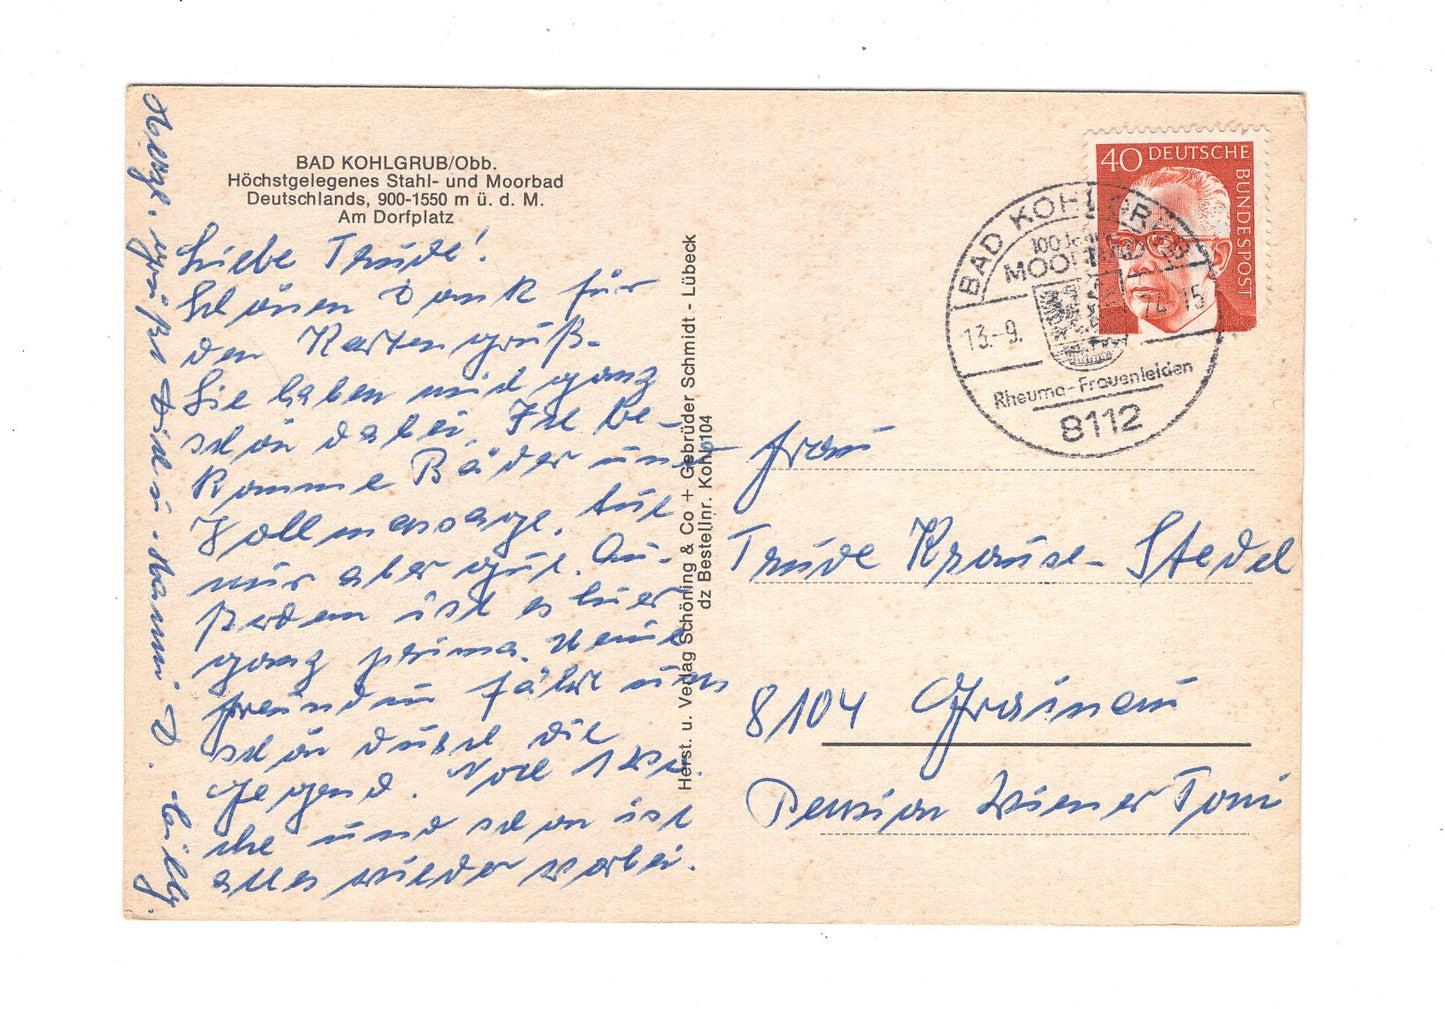 BAD KOHLGRUB/Obb.
Höchstgelegenes Stahl- und Moorbad
Deutschlands, 900-1550 m ü. d. M.
Am Dorfplatz
Liebe Trude!
Schönen Dank für
den Kartengruß.
Sie haben mich ganz
schön dabei. Ich be-
komme Bäder und
Vollmassage. Tut
nur aber gut. Au-
ßerdem ist es hier
ganz prima. Meine
Freundin fährt uns
schön durch die
Gegend. Noch 1 Wo.
che und schon ist
alles wieder vorbei.
Herzl. grüßt Dich u. Hanni D. Cilly.
Herst. u. Verlag Schöning & Co + Gebrüder Schmidt - Lübeck
dz Bestellnr. Koh 104
40 DEUTSCHE
BUNDESPOST
BAD KOHLGRUB
100 Jahre
MOORBAD
13.-9. 74-15
Rheuma-Frauenleiden
8112
Frau
Trude Krause-Stedel
8104 Grainau
Pension Wiener Toni